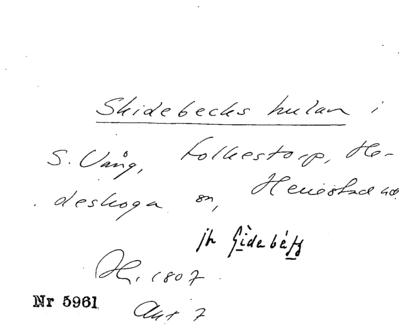 Skidebecks hulan i
S. Vång, Folkestorp, He-
deskoga sn, Herrestad
jfr Gidebäck
H. 1807
Nr 5961 Akt 7